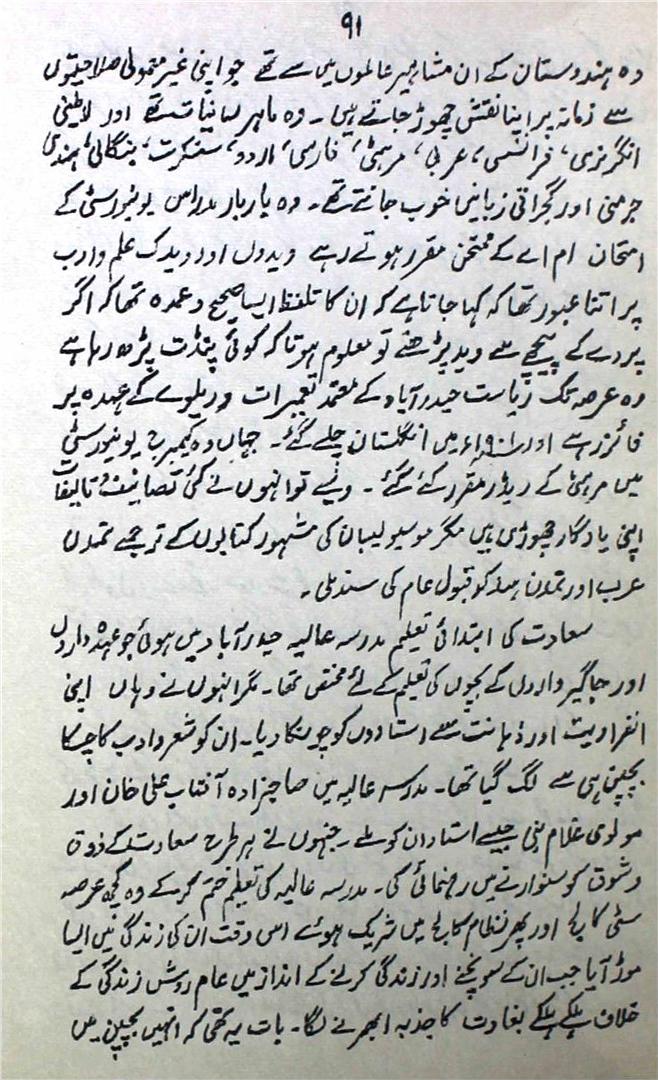 ۹۱
وہ ہندوستان کے ان مشاہیر عالموں میں سے تھے جو اپنی غیر معمولی صلاحیتوں
سے زمانہ پر اپنا نقش چھوڑ جاتے ہیں ۔ وہ ماہر لسانیات تھے اور لاطینی
انگریزی، فرانسسی، عربی، مرہٹی، فارسی، اردو، سنسکرت، بنگالی، ہندی
جرمنی اور گجراتی زبانیں خوب جانتے تھے ۔ وہ بار بار مدراس یونیورسٹی کے
امتحان ام اے کے ممتحن مقرر ہوتے رہے ویدوں اور ویدک علم و ادب
پر اتنا عبور تھا کہ کہا جاتا ہے کہ ان کا تلفظ ایسا صحیح و عمدہ تھا کہ اگر
پردے کے پیچھے سے وید پڑھتے تو معلوم ہوتا کہ کوئی پنڈت پڑھ رہا ہے
وہ عرصہ تک ریاست حیدرآباد کے معتمد تعمیرات و ریلوے کے عہدہ پر
فائز رہے اور ۱۹۰۱ء میں انگلستان چلے گئے ۔ جہاں وہ کیمبرج یونیورسٹی
میں مرہٹی کے ریڈر مقرر کئے گئے ۔ ویسے تو انہوں نے کئی تصانیف و تالیفات
اپنی یادگار چھوڑی ہیں مگر موسیو لیبان کی مشہور کتابوں کے ترجمے تمدن
عرب اور تمدن ہند کو قبول عام کی سند ملی ۔
سعادت کی ابتدائی تعلیم مدرسہ عالیہ حیدرآباد میں ہوئی جو عہدہ داروں
اور جاگیرداروں کے بچوں کی تعلیم کے لئے مختص تھا ۔ مگر انہوں نے وہاں اپنی
انفرادیت اور ذہانت سے استادوں کو چونکا دیا ۔ ان کو شعر و ادب کا چسکا
بچپن ہی سے لگ گیا تھا ۔ مدرسہ عالیہ میں صاحبزادہ آفتاب علی خان اور
مولوی غلام نبی جیسے استاد ان کو ملے ۔ جنہوں نے ہر طرح سعادت کے ذوق
و شوق کو سنوارنے میں رہنمائی کی ۔ مدرسہ عالیہ کی تعلیم ختم کرکے وہ کچھ عرصہ
سٹی کالج اور پھر نظام کالج میں شریک ہوئے اس وقت ان کی زندگی میں ایسا
موڑ آیا جب ان کے سونچنے اور زندگی کرنے کے انداز میں عام روش زندگی کے
خلاف ہلکے ہلکے بغاوت کا جذبہ ابھرنے لگا ۔ بات یہ تھی کہ انہیں بچپن میں